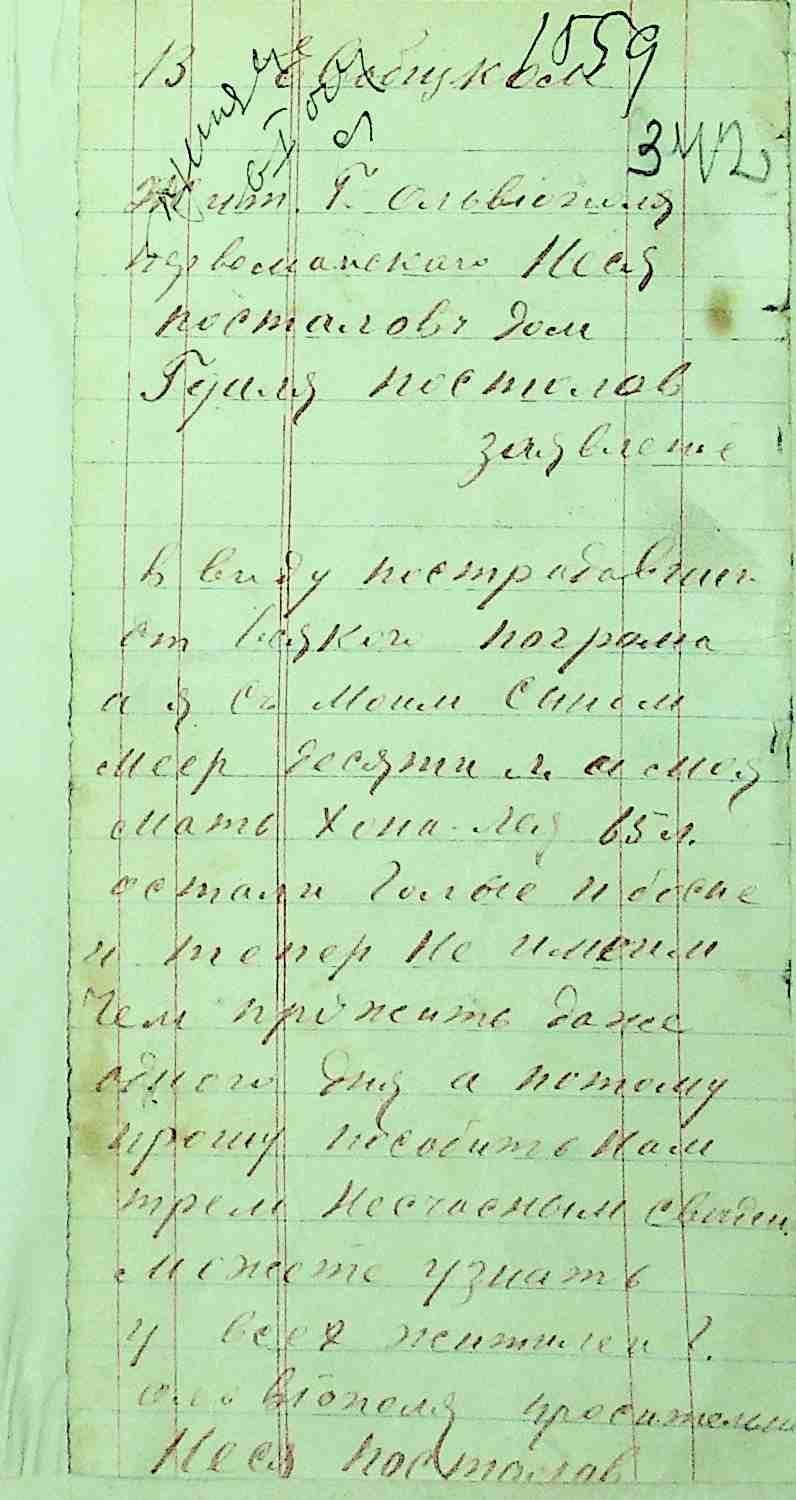 В Евобцуком
1059
342
Жит. Г. Ольвіополя
первомайскаго Неся
постоловъ дом
Гдиля постолов
заявлене
в виду пострадавшеи
от всякого погрома
и я съ моим сыном
меер десяти л. и моя
мать Хона-Лея 65 л.
остали голые и босие
и тепер не имеим
чем прожить даже
одного дня а потому
прошу пособить нам
трем несчасным сведен.
можете узнать
у всех жителеи г.
ольвіополя просительни
Неся постолов